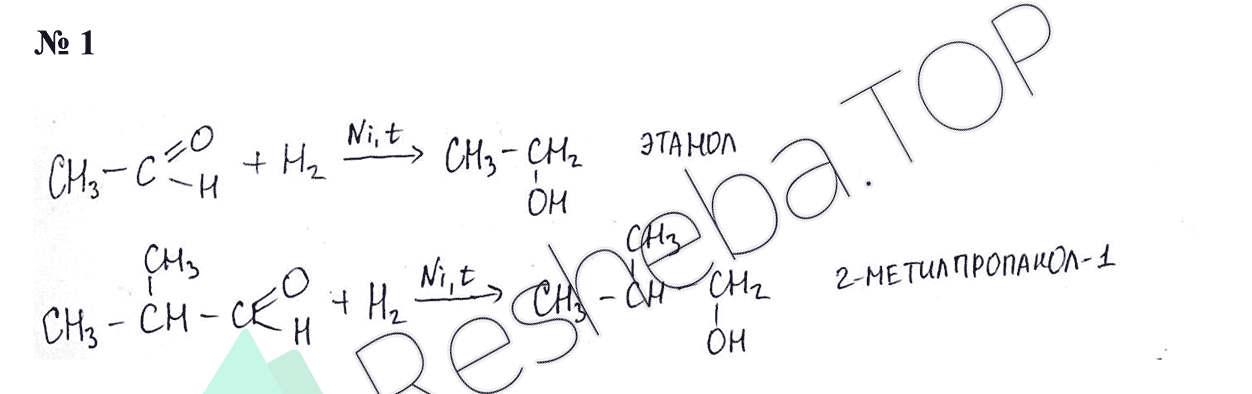 № 1
CH₃ – C =O –H + H₂ Ni, t → CH₃ – CH₂ ЭТАНОЛ
OH
CH₃ CH₃
CH₃ – CH – C =O –H + H₂ Ni, t → CH₃ – CH – CH₂ 2-МЕТИЛПРОПАНОЛ-1
OH
Resheba.TOP